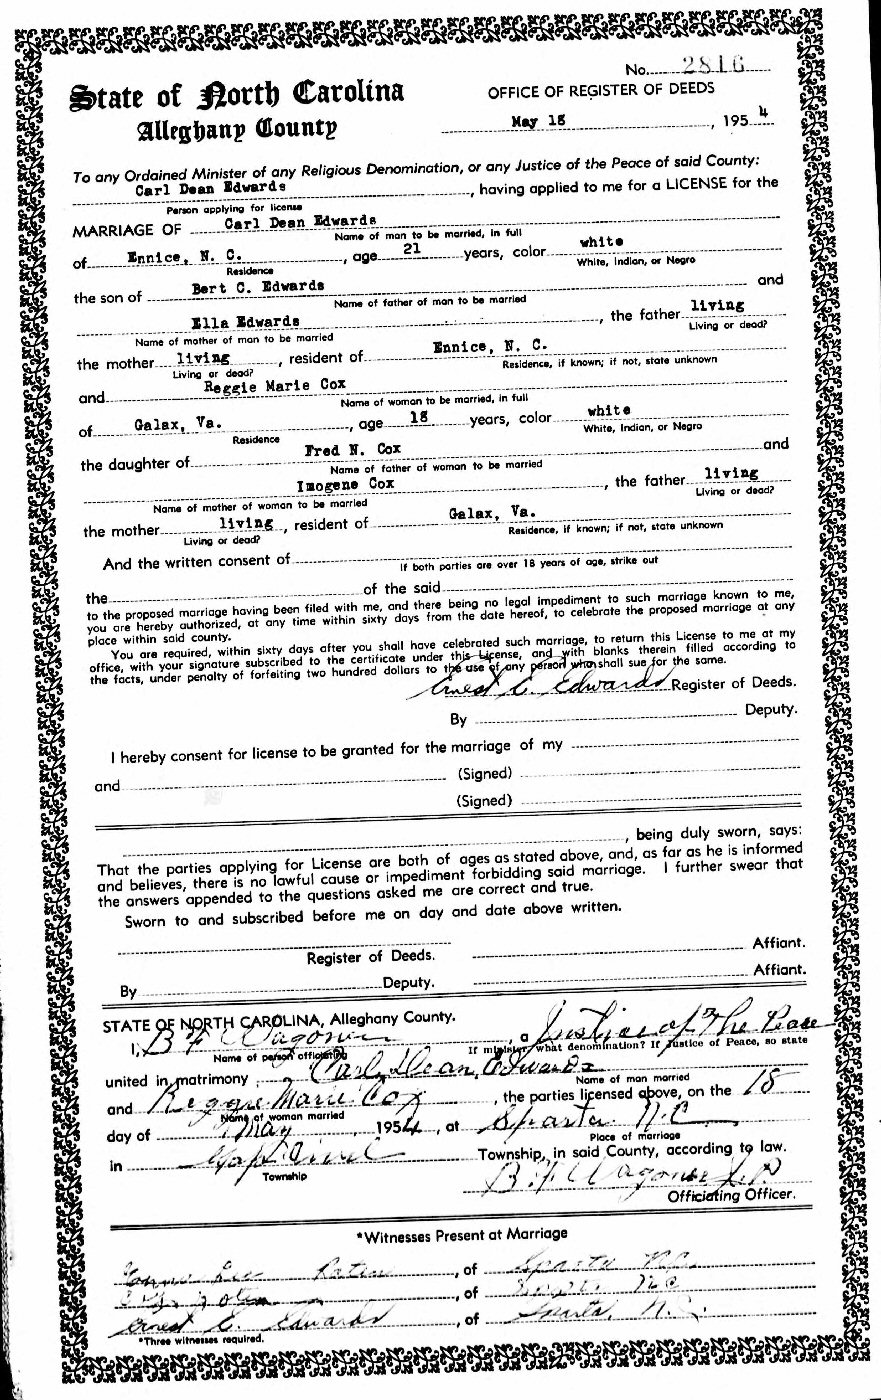 No. 2816
State of North Carolina
OFFICE OF REGISTER OF DEEDS
Alleghany County
May 15, 1954
To any Ordained Minister of any Religious Denomination, or any Justice of the Peace of said County:
Carl Dean Edwards, having applied to me for a LICENSE for the
Person applying for license
MARRIAGE OF Carl Dean Edwards
Name of man to be married, in full
of Ennice, N. C., age 21 years, color white
Residence White, Indian, or Negro
the son of Bert C. Edwards and
Name of father of man to be married
Ella Edwards, the father living
Name of mother of man to be married Living or dead?
the mother living, resident of Ennice, N. C.
Living or dead? Residence, if known; if not, state unknown
and Reggie Marie Cox
Name of woman to be married, in full
of Galax, Va., age 18 years, color white
Residence White, Indian, or Negro
the daughter of Fred N. Cox and
Name of father of woman to be married
Imogene Cox, the father living
Name of mother of woman to be married Living or dead?
the mother living, resident of Galax, Va.
Living or dead? Residence, if known; if not, state unknown
And the written consent of
If both parties are over 18 years of age, strike out
the of the said
to the proposed marriage having been filed with me, and there being no legal impediment to such marriage known to me,
you are hereby authorized, at any time within sixty days from the date hereof, to celebrate the proposed marriage at any
place within said county.
You are required, within sixty days after you shall have celebrated such marriage, to return this License to me at my
office, with your signature subscribed to the certificate under this License, and with blanks therein filled according to
the facts, under penalty of forfeiting two hundred dollars to the use of any person who shall sue for the same.
Ernest C. Edwards Register of Deeds.
By Deputy.
I hereby consent for license to be granted for the marriage of my
and (Signed)
(Signed)
, being duly sworn, says:
That the parties applying for License are both of ages as stated above, and, as far as he is informed
and believes, there is no lawful cause or impediment forbidding said marriage. I further swear that
the answers appended to the questions asked me are correct and true.
Sworn to and subscribed before me on day and date above written.
Affiant.
Register of Deeds.
Affiant.
By Deputy.
STATE OF NORTH CAROLINA, Alleghany County.
I, B F Wagoner a Justice of The Peace
Name of person officiating If minister, what denomination? If Justice of Peace, so state
united in matrimony Carl Dean Edwards
Name of man married
and Reggie Marie Cox, the parties licensed above, on the 15
Name of woman married
day of May, 1954, at Sparta N.C.
Place of marriage
in Township, in said County, according to law.
Township
B. F Wagoner J.P
Officiating Officer.
*Witnesses Present at Marriage
Lee, of Sparta N.C.
, of N.C.
Ernest C. Edwards, of Sparta, N.C.
*Three witnesses required.